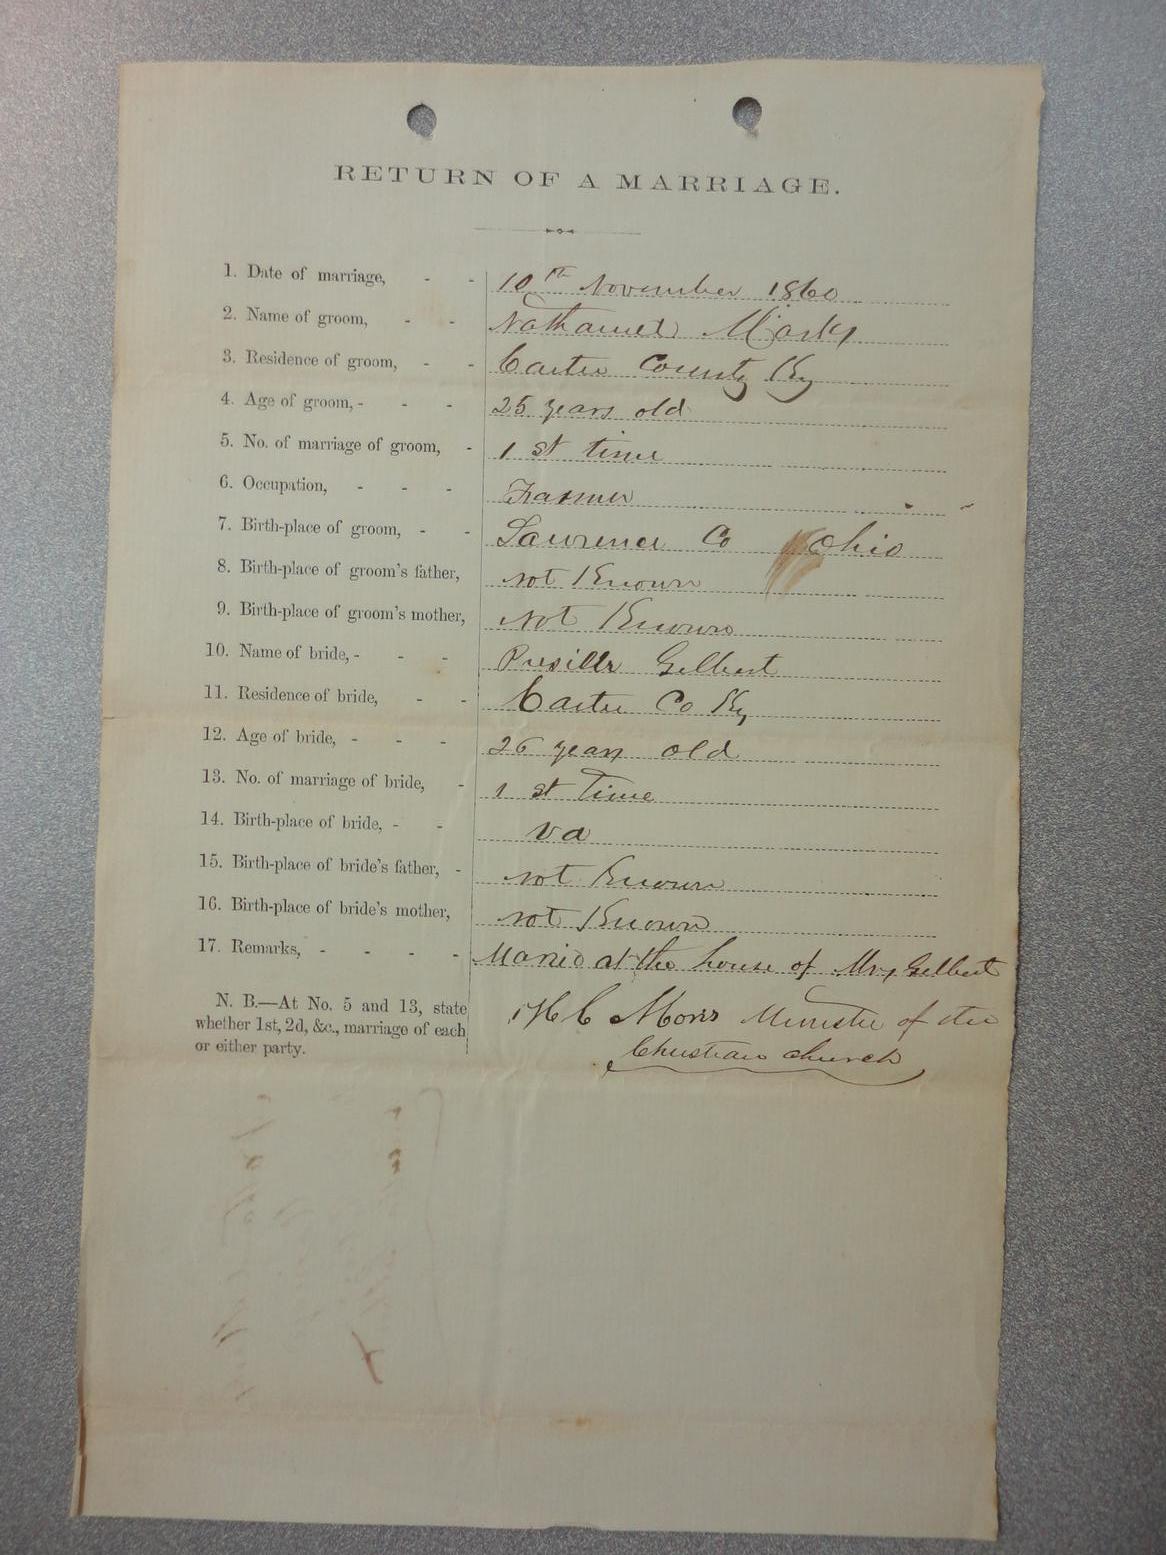 RETURN OF A MARRIAGE.
1. Date of marriage, - - 10th November 1860
2. Name of groom, - - Nathaniel Marks
3. Residence of groom, - - Carter County Ky
4. Age of groom, - - - 25 years old
5. No. of marriage of groom, - 1 st time
6. Occupation, - - - Farmer
7. Birth-place of groom, - - Lawrence Co Ohio
8. Birth-place of groom's father, not Known
9. Birth-place of groom's mother, Not Known
10. Name of bride, - - - Gilbert
11. Residence of bride, - - Carter Co Ky
12. Age of bride, - - - 26 years old
13. No. of marriage of bride, - 1 st Time
14. Birth-place of bride, - - Va
15. Birth-place of bride's father, - not Known
16. Birth-place of bride's mother, not Known
17. Remarks, - - - - Maried at the house of Mrs Gilbert
N. B.—At No. 5 and 13, state
whether 1st, 2d, &c., marriage of each
or either party.
H C Morris Minister of the
Christian Church